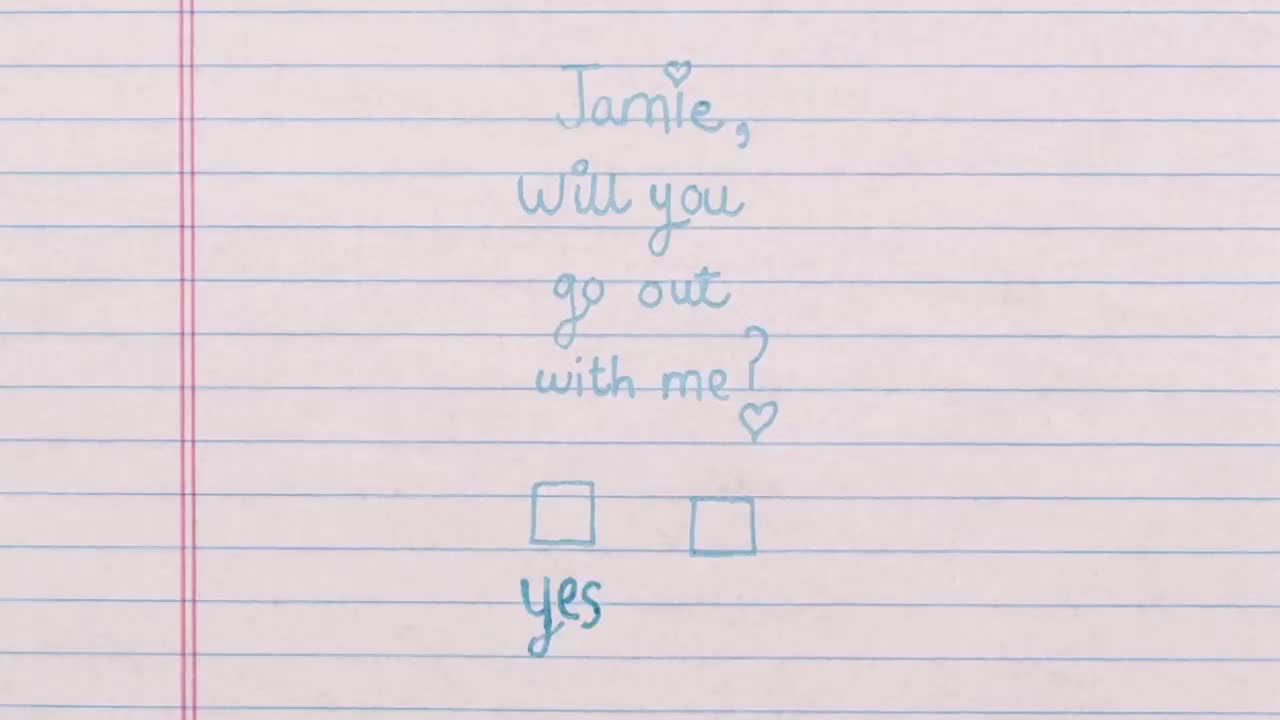 Jamie,
Will you
go out
with me?
yes